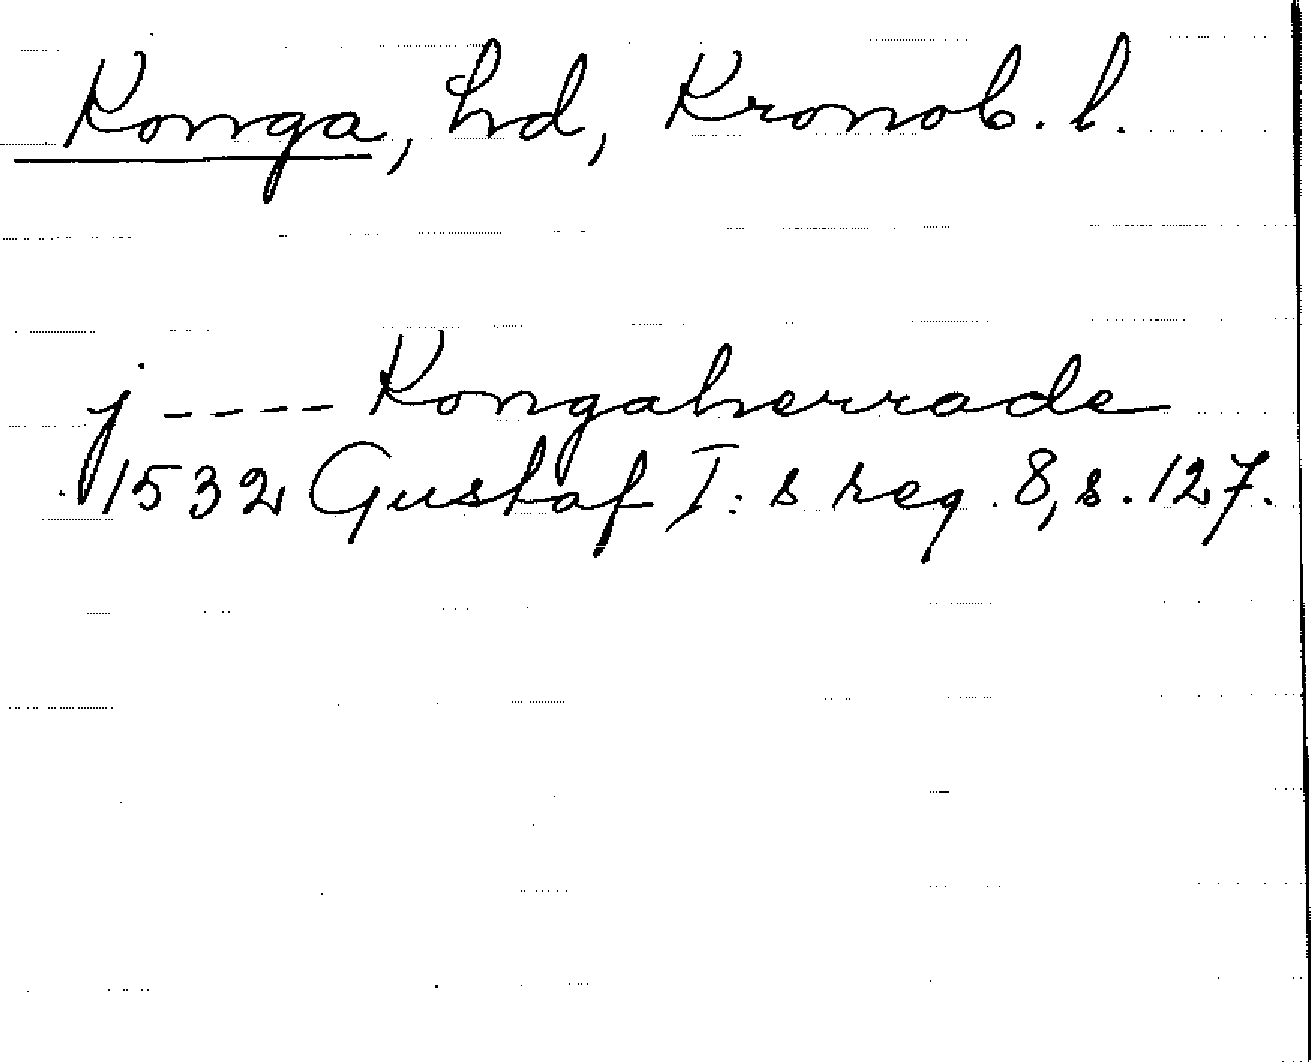 Konga, hd, Kronob. l.
j ---- Kongaherrade
1532 Gustaf I:s reg. 8, s. 127.